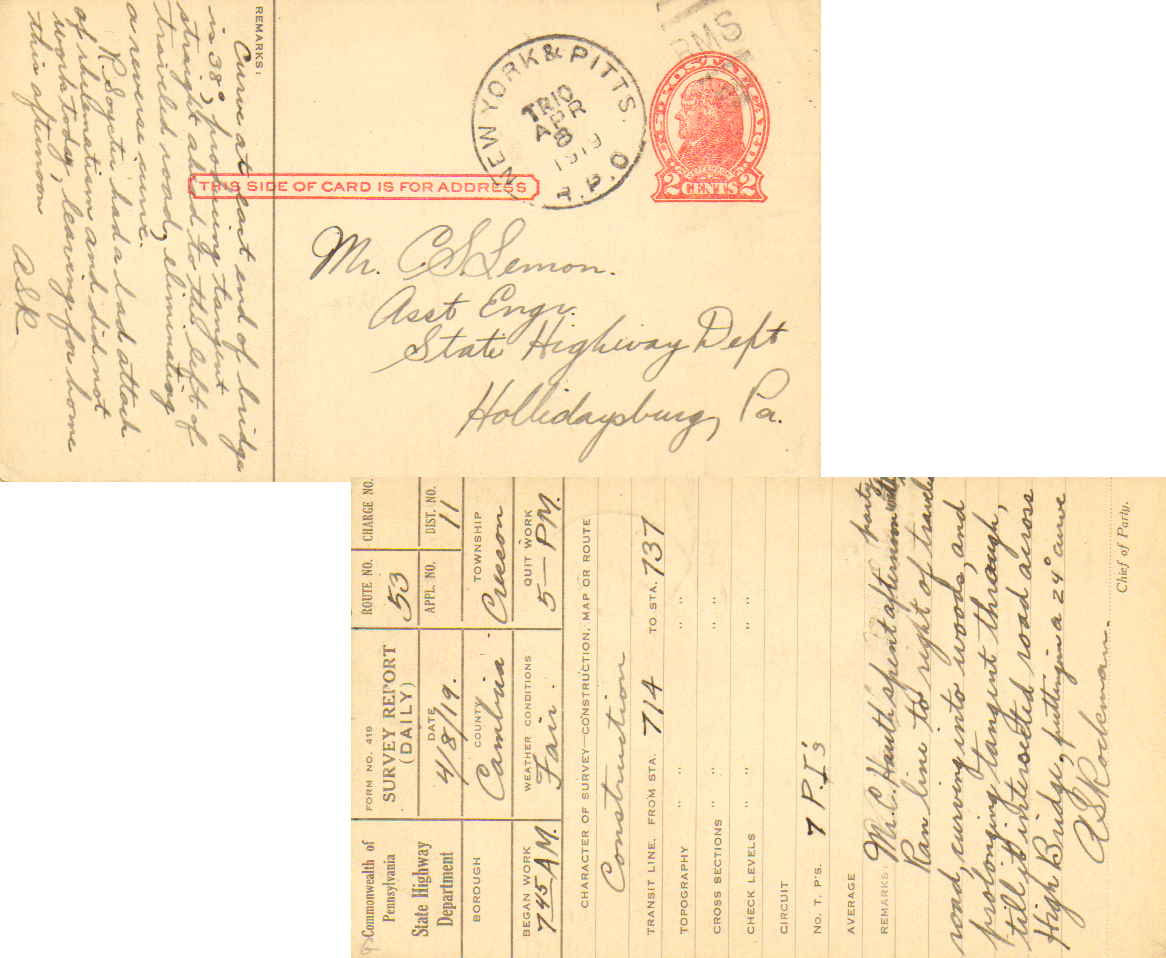 REMARKS:
Curve at east end of bridge
is 38°, producing tangent
straight ahead to the left of
traveled road, eliminating
a reverse curve.
had a bad attack
of rhematism and did not
work today, leaving for home
this afternoon
ASR
NEW YORK & PITTS. R.P.O.
TR10
APR
8
1919
RMS
2 CENTS 2
THIS SIDE OF CARD IS FOR ADDRESS
Mr. C S Lemon.
Asst Engr.
State Highway Dept
Hollidaysburg, Pa.
Commonwealth of
Pennsylvania
State Highway
Department
FORM NO. 419
SURVEY REPORT
(DAILY)
ROUTE NO.
53
CHARGE NO.
DATE
4/8/19.
APPL. NO.
DIST. NO.
11
BOROUGH
COUNTY
Cambria
TOWNSHIP
Cresson
BEGAN WORK
7 45 AM.
WEATHER CONDITIONS
Fair.
QUIT WORK
5 - PM.
CHARACTER OF SURVEY—CONSTRUCTION, MAP OR ROUTE
Construction
TRANSIT LINE, FROM STA. 714 TO STA. 737
TOPOGRAPHY " " " "
CROSS SECTIONS " " " "
CHECK LEVELS " " " "
CIRCUIT
NO. T. P'S. 7 P.I's
AVERAGE
REMARKS: Mr. C. Hauth spent afternoon with party
Ran line to right of traveled
road, curving into woods, and
prolonging tangent through,
till it intersected road across
High Bridge, putting in a 24° curve
ASRockman.
Chief of Party.